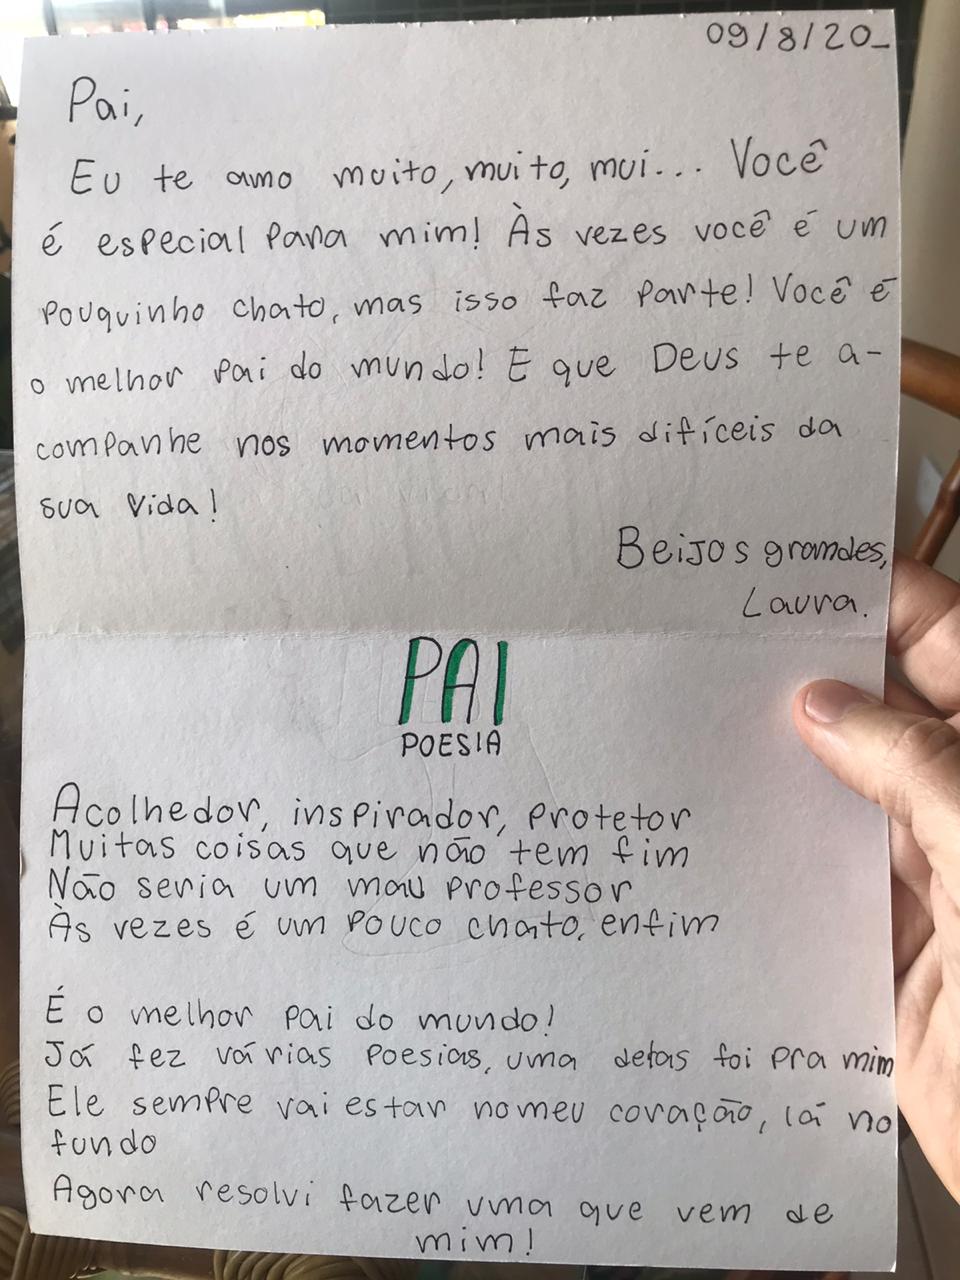 09/8/20_
Pai,
Eu te amo muito, muito, mui... Você
é especial para mim! Às vezes você é um
pouquinho chato, mas isso faz parte! Você é
o melhor pai do mundo! E que Deus te a-
companhe nos momentos mais difíceis da
sua vida!
Beijos grandes,
Laura.
PAI
POESIA
Acolhedor, inspirador, protetor
Muitas coisas que não tem fim
Não seria um mau professor
Às vezes é um pouco chato, enfim
É o melhor pai do mundo!
Já fez várias poesias, uma delas foi pra mim
Ele sempre vai estar no meu coração, lá no
fundo
Agora resolvi fazer uma que vem de
mim!